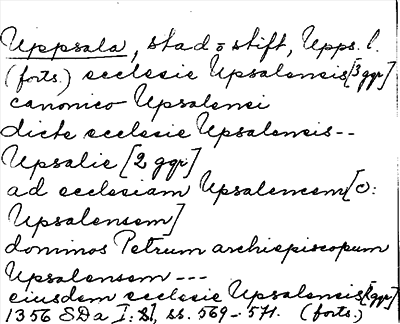 Uppsala, stad o stift, Upps. l.
(forts.) ecclesie Upsalensis [3 ggr]
canonico Upsalensi
dicte ecclesie Upsalensis --
Upsalie [2 ggr]
ad ecclesiam Upsalencem [o:
Upsalensem]
dominos Petrum archiepiscopum
Upsalensem ---
eiusdem ecclesie Upsalensis [ggr]
1356 SDa I: ss. 569-571. (forts.)